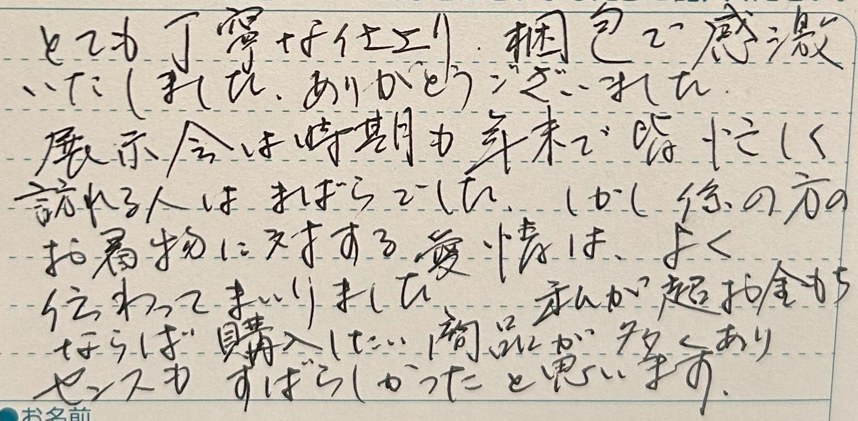 とても丁寧な仕上り、梱包で感激
いたしました。ありがとうございました。
展示会は時期も年末で皆忙しく
訪れる人はまばらでした。しかし係の方の
お着物に対する愛情は、よく
伝わってまいりました。私が超お金もち
ならば購入したい商品が多くあり
センスもすばらしかったと思います。
●お名前